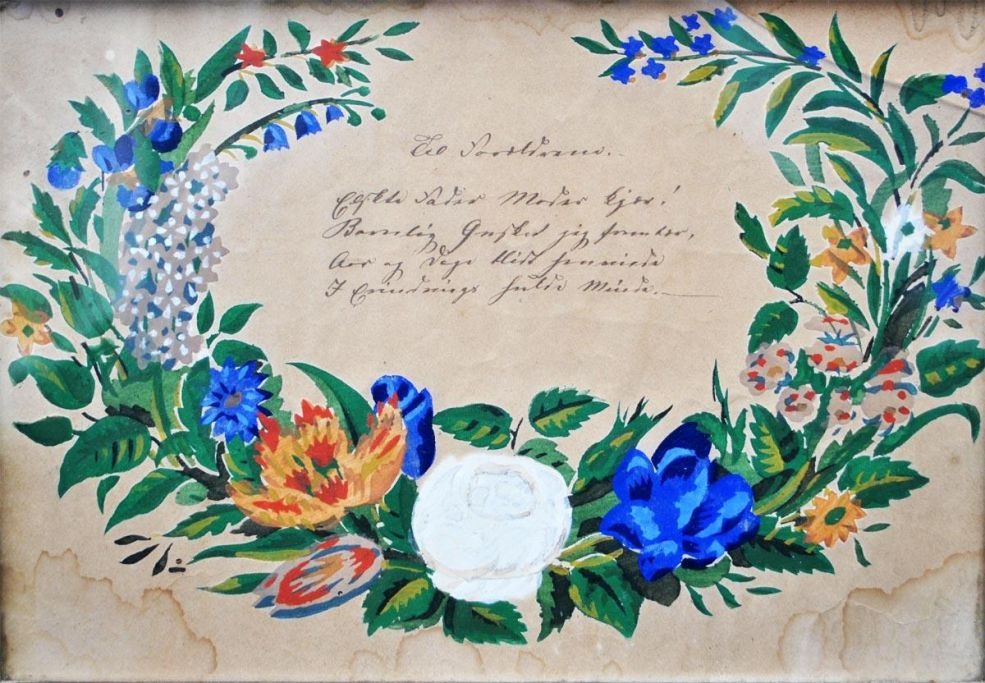 Til Forældrene.
Elskte Fader Moder kjær!
Barnlig Ønsket jeg frember,
Aar og Dage blidt henrinde
I Erindrings hulde Minde.